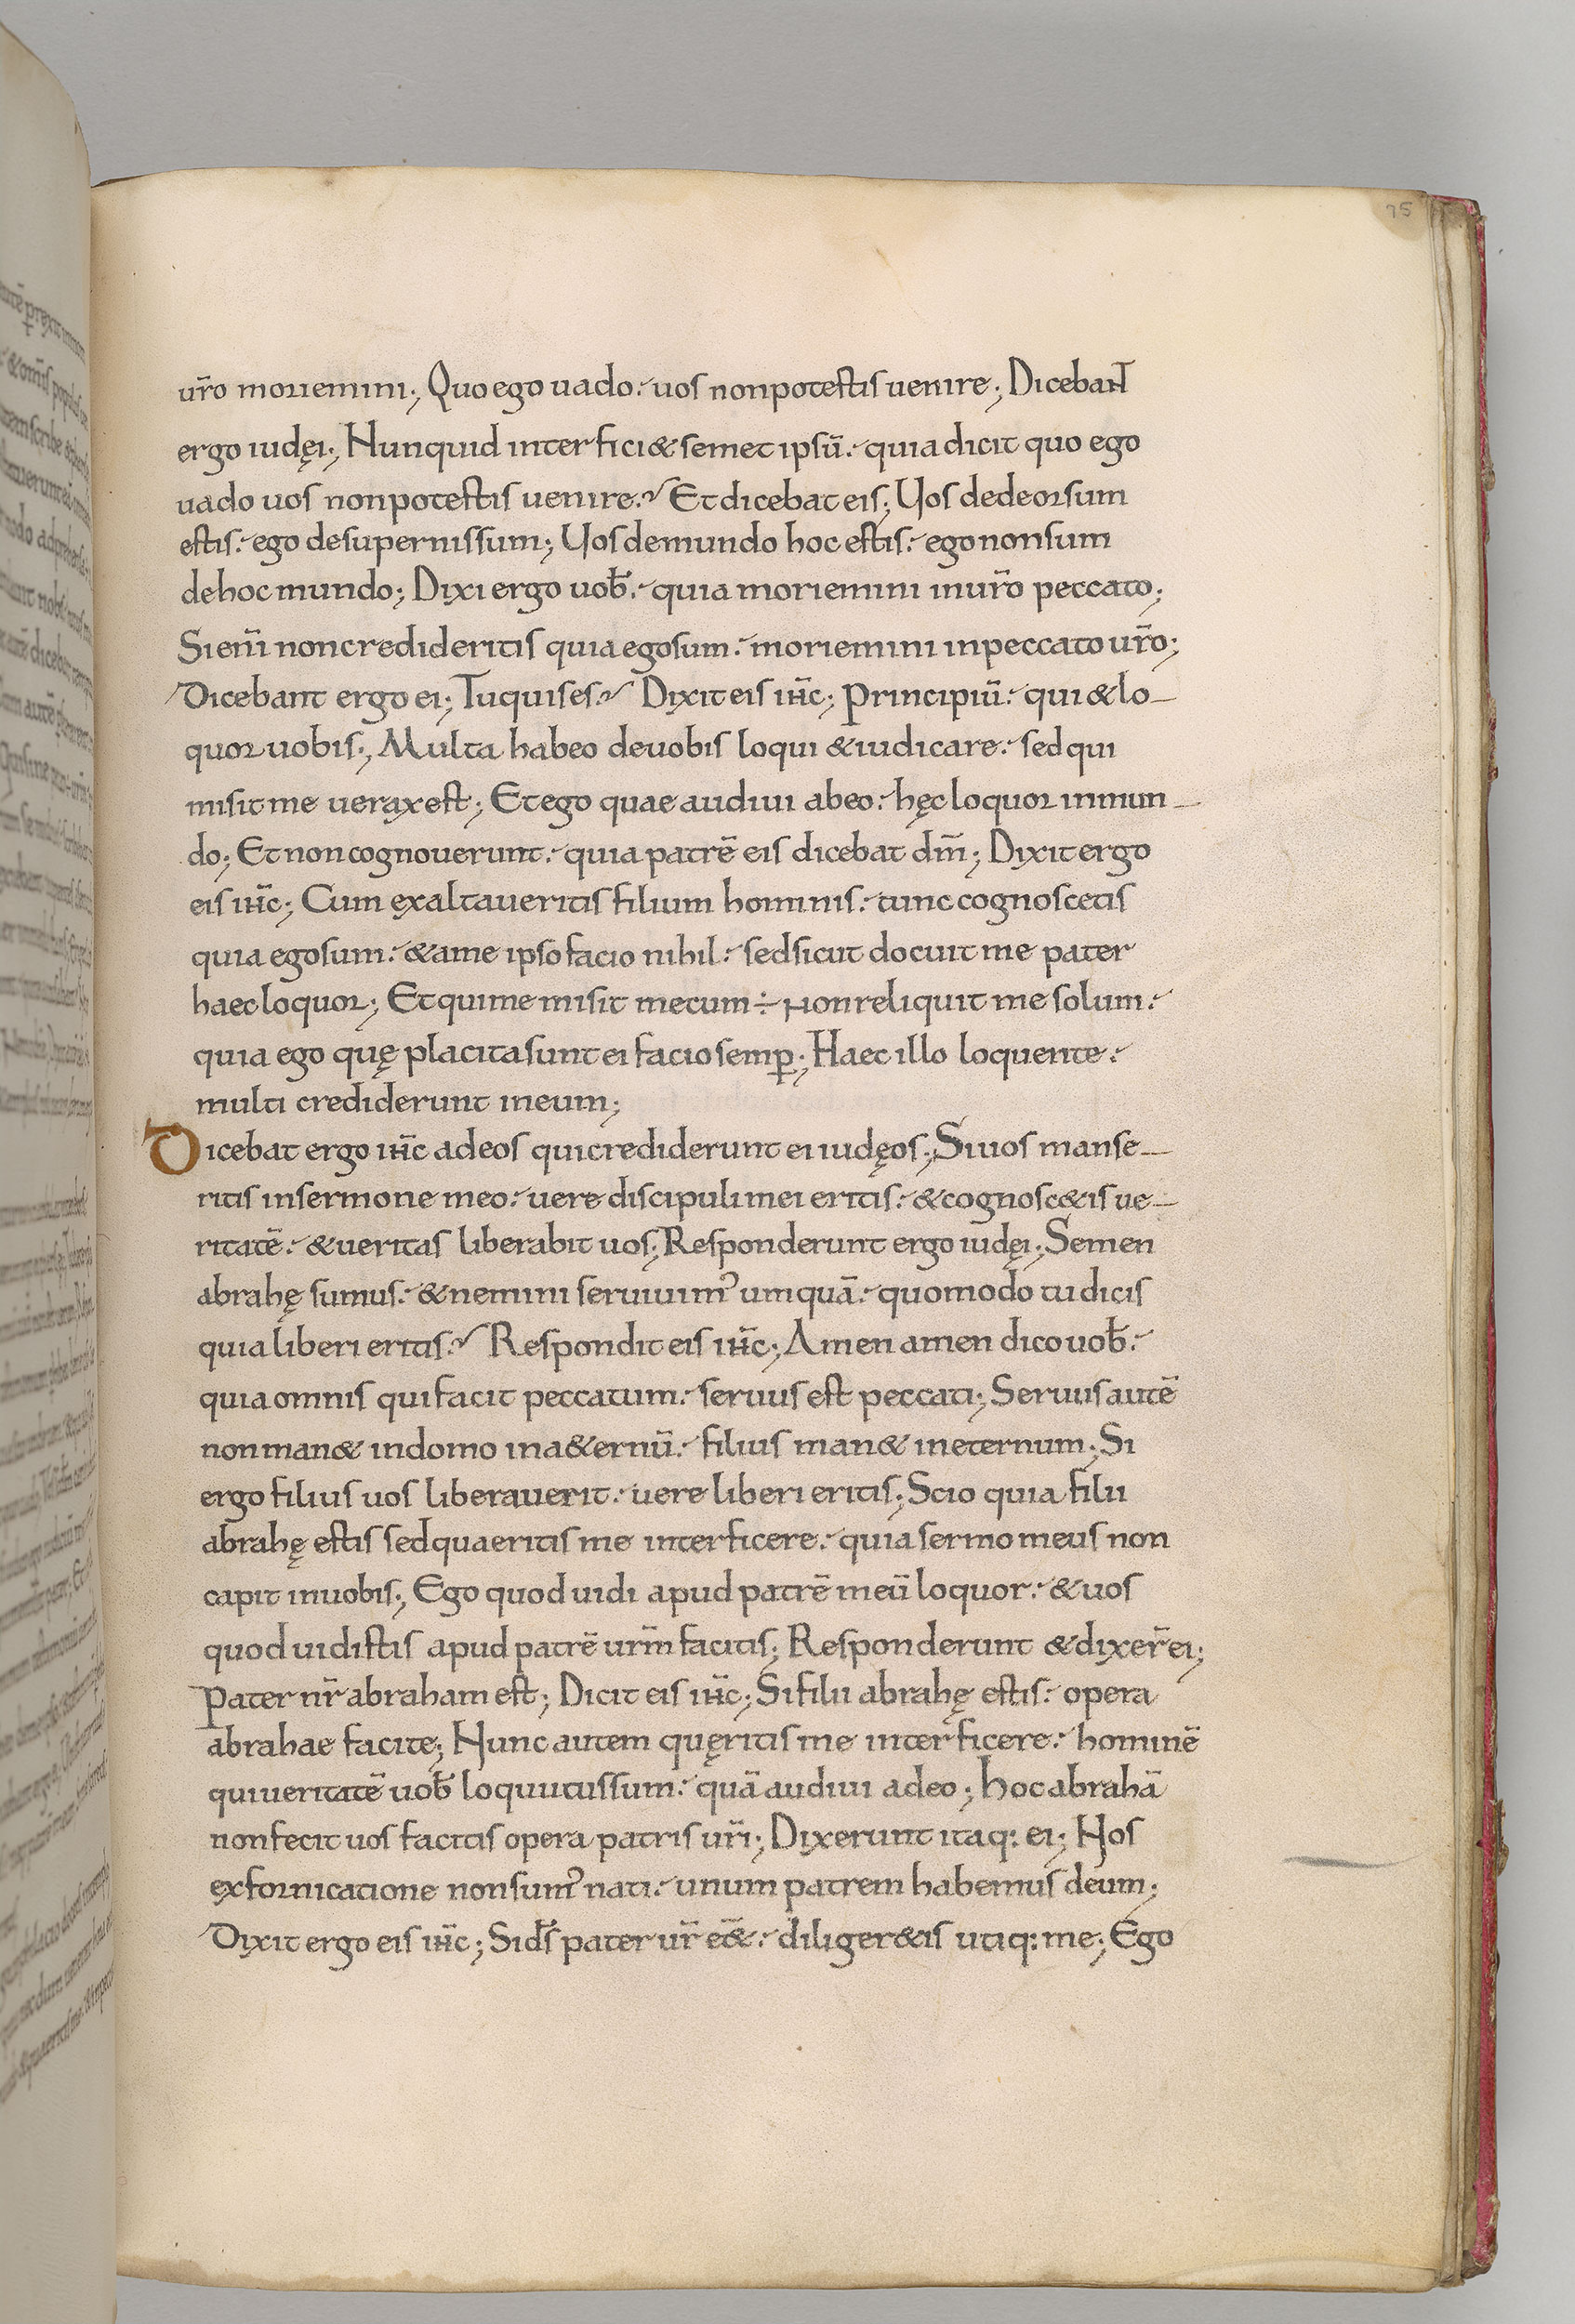 75
ur̄o moriemini; Quo ego uado. uos non potestis uenire; Dicebant
ergo iudęi; Nunquid interfici& semet ipsū. quia dicit quo ego
uado uos non potestis uenire? Et dicebat eis; Uos de deorsum
estis. ego de supernis sum; Uos de mundo hoc estis. ego non sum
de hoc mundo; Dixi ergo uob̄. quia moriemini in ur̄o peccato;
Si eni̅ non credideritis quia ego sum. moriemini in peccato ur̄o;
Dicebant ergo ei; Tu quis es? Dixit eis ih̅c; Principiū. qui & lo-
quor uobis; Multa habeo de uobis loqui & iudicare. sed qui
misit me uerax est; Et ego quae audiui ab eo. hęc loquor in mun-
do; Et non cognouerunt. quia patrē eis dicebat dm̅; Dixit ergo
eis ih̅c; Cum exaltaueritis filium hominis. tunc cognoscetis
quia ego sum. & a me ipso facio nihil. sed sicut docuit me pater
haec loquor; Et qui me misit mecum ÷ non reliquit me solum.
quia ego quę placita sunt ei facio semꝑ; Haec illo loquente.
multi crediderunt in eum;
Dicebat ergo ih̅c ad eos qui crediderunt ei iudęos; Si uos manse-
ritis in sermone meo. uere discipuli mei eritis. & cognosc&is ue-
ritatē. & ueritas liberabit uos; Responderunt ergo iudęi; Semen
abrahę sumus. & nemini seruiuim' umquā. quomodo tu dicis
quia liberi eritis? Respondit eis ih̅c; Amen amen dico uob̄.
quia omnis qui facit peccatum. seruus est peccati; Seruus autē
non man& in domo in a&ernū. filius man& in eternum; Si
ergo filius uos liberauerit. uere liberi eritis; Scio quia filii
abrahę estis sed quaeritis me interficere. quia sermo meus non
capit in uobis; Ego quod uidi apud patrē meū loquor. & uos
quod uidistis apud patrē urm̅ facitis; Responderunt & dixer̄ ei;
Pater nr̄ abraham est; Dicit eis ih̅c; Si filii abrahę estis. opera
abrahae facite; Nunc autem quęritis me interficere. hominē
qui ueritatē uob̄ loquutus sum. quā audiui a deo; hoc abrahā
non fecit uos facitis opera patris ur̄i; Dixerunt itaq: ei; Nos
ex fornicatione non sum' nati. unum patrem habemus deum;
Dixit ergo eis ih̅c; Si ds̅ pater ur̄ e̅&. diliger&is utiq: me; Ego